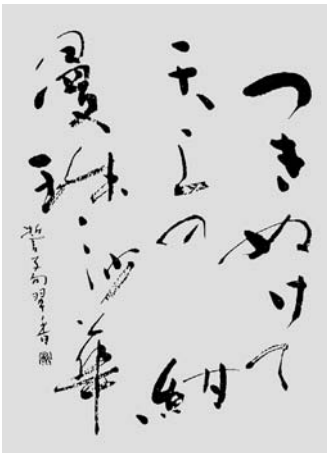 つきぬけて
天上の紺
曼珠沙華
誓子句翠香